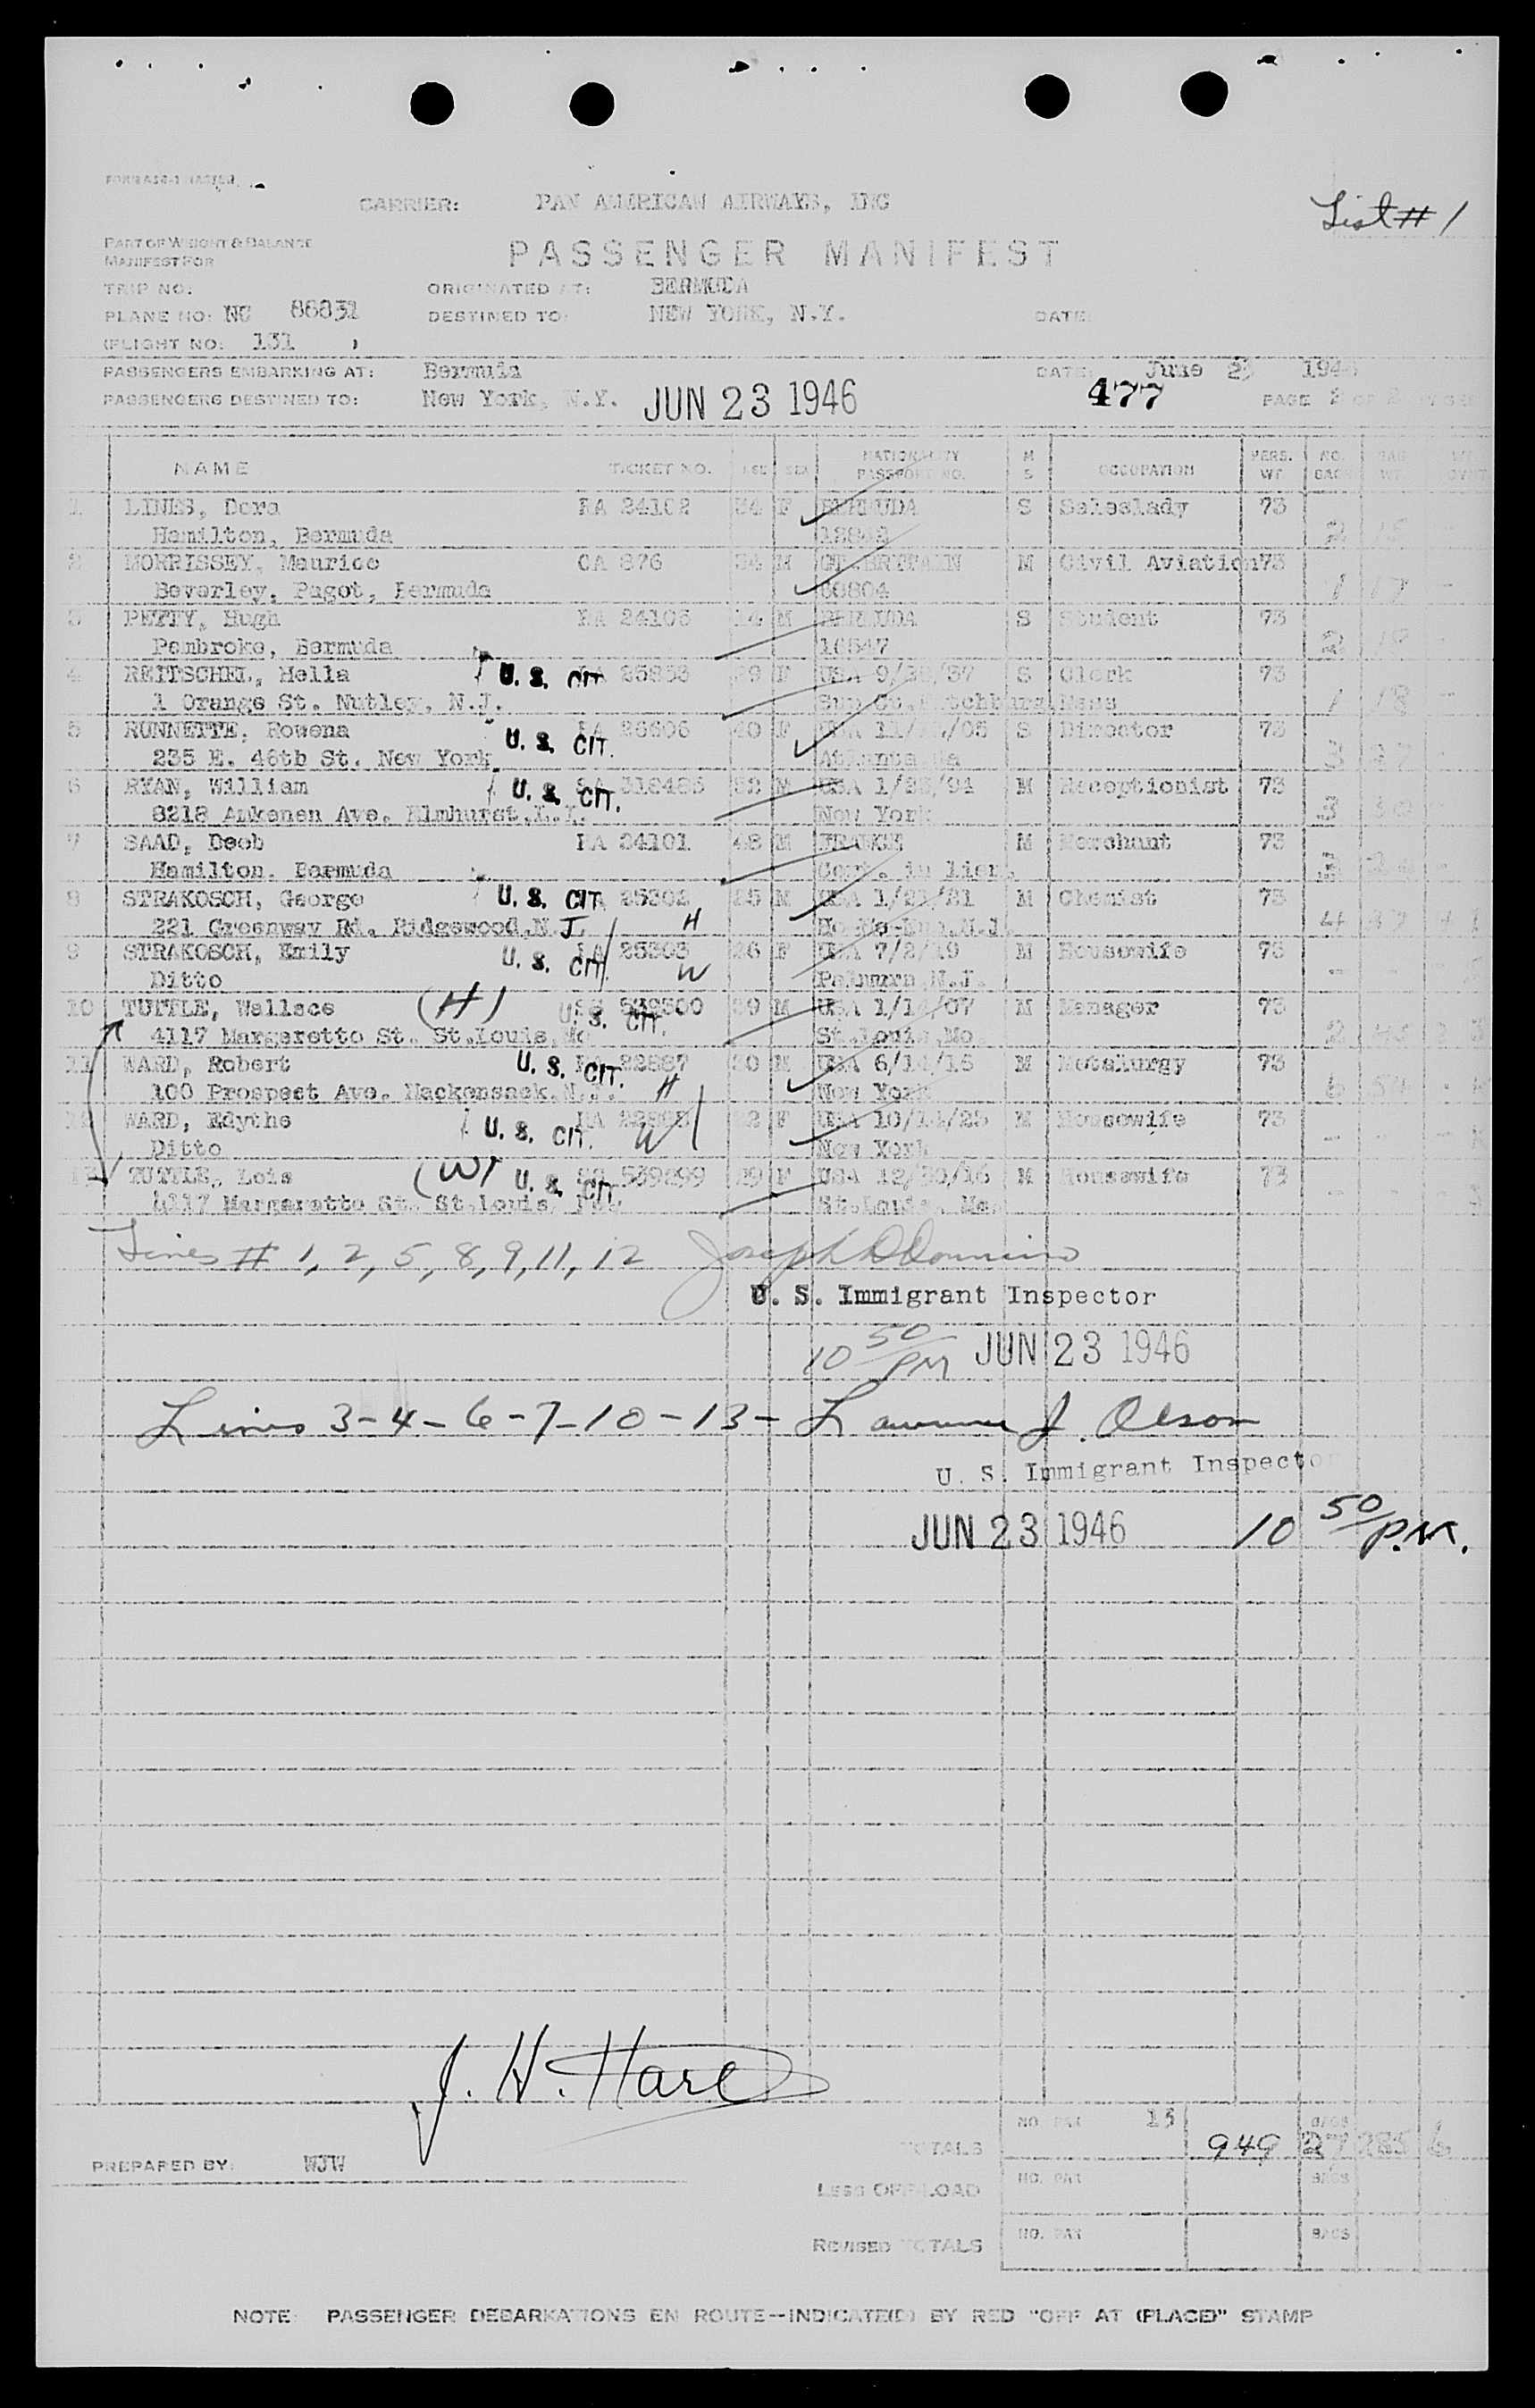 List # 1
CARRIER: PAN AMERICAN AIRWAYS, INC
PART OF WEIGHT & BALANCE
MANIFEST FOR
PASSENGER MANIFEST
TRIP NO. ORIGINATED AT: BERMUDA
PLANE NO: NC 86831 DESTINED TO: NEW YORK, N.Y. DATE:
(FLIGHT NO. 131 )
PASSENGERS EMBARKING AT: Bermuda DATE: June 23 1946
PASSENGERS DESTINED TO: New York, N.Y. JUN 23 1946 477 PAGE 2 OF 2
NAME TICKET NO. AGE SEX NATIONALITY PASSPORT NO. M S OCCUPATION PERS. WT NO. BAGS BAG WT
1 LINES, Dora 24102 34 F BERMUDA S Saleslady 73 2 15
Hamilton, Bermuda
2 MORRISSEY, Maurice CA 876 34 M GT.BRITAIN M Civil Aviation 73 1 17
Beverley, Paget, Bermuda
3 PETTY, Hugh 14 M BERMUDA S Student 73 2
Pembroke, Bermuda 16547
4 REITSCHEL, Hella U. S. CIT 29 F USA S Clerk 73 1 18
1 Orange St. Nutley, N.J.
5 RUNNETTE, Rowena U. S. CIT. 40 F S Director 73 3
235 E. 46th St. New York Atlanta Ga
6 RYAN, William U. S. CIT. 52 M USA M Receptionist 73 3
8218 Ankenen Ave. Elmhurst, L.I. New York
7 SAAD, Deeb 24101 48 M FRANCE M Merchant 73 3
Hamilton, Bermuda
8 STRAKOSCH, George U. S. CIT. 25302 25 M USA M Chemist 73 4
221 Greenway Rd. Ridgewood, N.J. H
9 STRAKOSCH, Emily U. S. CIT. 25303 26 F USA 7/2/19 M Housewife 73
Ditto W Palmyra N.J.
10 TUTTLE, Wallace (H) U. S. CIT. 39 M USA M Manager 73 2
4117 Margaretto St. St.Louis, Mo St.Louis, Mo.
11 WARD, Robert U. S. CIT. 22887 30 M USA M Metalurgy 73 6
100 Prospect Ave. Hackensack, N.J. H New York
12 WARD, Edythe U. S. CIT. F USA M Housewife 73
Ditto W New York
13 TUTTLE, Lois (W) U. S. CIT. 539299 29 F USA 12/30/16 M Housewife 73
4117 Margaretto St. St.Louis, St.Louis, Mo.
Lines # 1, 2, 5, 8, 9, 11, 12 Joseph D
U. S. Immigrant Inspector
10 50 PM JUN 23 1946
Lines 3-4-6-7-10-13- Lawrence J. Olson
U. S. Immigrant Inspector
JUN 23 1946 10 50 P.M.
J. H. Hare
NO. PAX 13 BAGS
TOTALS 949 27 285 6
PREPARED BY: WJW
LESS OFF-LOAD NO. PAX BAGS
REVISED TOTALS NO. PAX BAGS
NOTE: PASSENGER DEBARKATIONS EN ROUTE--INDICATE(D) BY RED "OFF AT (PLACE)" STAMP